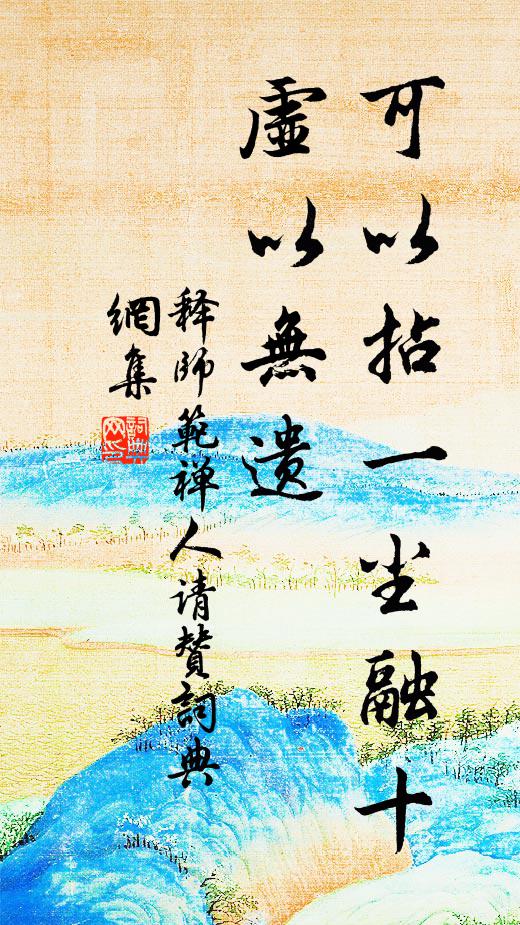 可以拈一尘融十
虛以無遺
释師範禅人请贊詞典
網集
詞典
网